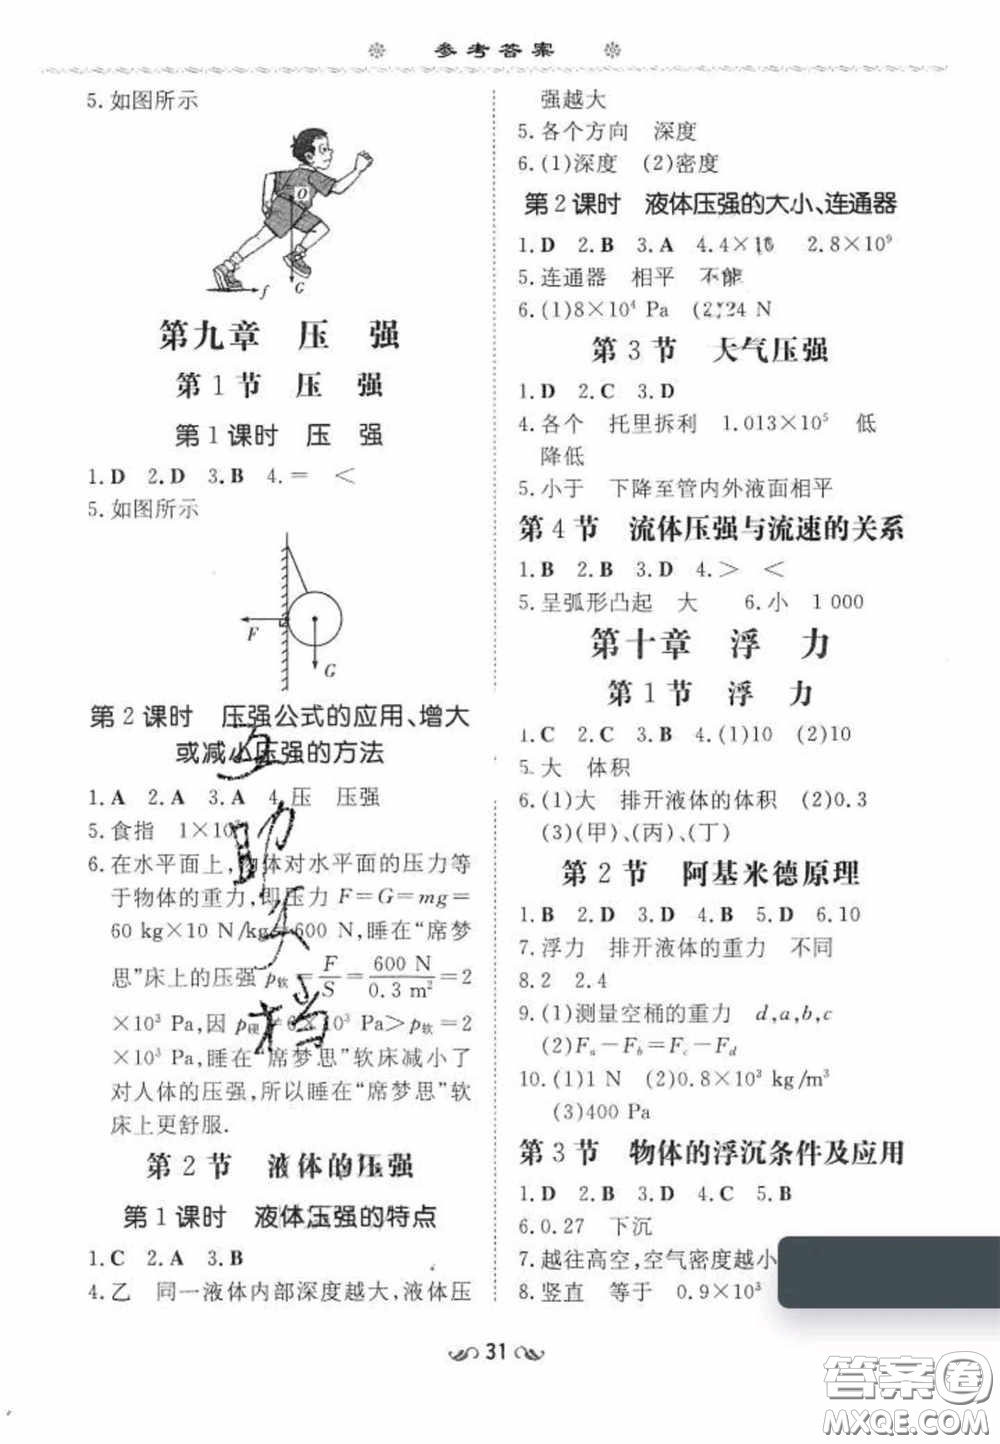 参考答案
5.如图所示
O
f
G
第九章 压 强
第1节 压 强
第1课时 压 强
1.D 2.D 3.B 4.= <
5.如图所示
F
G
第2课时 压强公式的应用、增大
或减小压强的方法
1.A 2.A 3.A 4.压 压强
5.食指 1×10
6.在水平面上,物体对水平面的压力等
于物体的重力,即压力F=G=mg=
60 kg×10 N/kg=600 N,睡在“席梦
思”床上的压强p软=F/S=600 N/0.3 m²=2
×10³ Pa,因p硬=6×10³ Pa>p软=2
×10³ Pa,睡在“席梦思”软床减小了
对人体的压强,所以睡在“席梦思”软
床上更舒服.
第2节 液体的压强
第1课时 液体压强的特点
1.C 2.A 3.B
4.乙 同一液体内部深度越大,液体压
强越大
5.各个方向 深度
6.(1)深度 (2)密度
第2课时 液体压强的大小、连通器
1.D 2.B 3.A 4.4×10 2.8×10⁹
5.连通器 相平 不能
6.(1)8×10⁴ Pa (2)24 N
第3节 大气压强
1.D 2.C 3.D
4.各个 托里拆利 1.013×10⁵ 低
降低
5.小于 下降至管内外液面相平
第4节 流体压强与流速的关系
1.B 2.B 3.D 4.> <
5.呈弧形凸起 大 6.小 1 000
第十章 浮 力
第1节 浮 力
1.C 2.C 3.B 4.(1)10 (2)10
5.大 体积
6.(1)大 排开液体的体积 (2)0.3
(3)(甲)、(丙)、(丁)
第2节 阿基米德原理
1.B 2.D 3.D 4.B 5.D 6.10
7.浮力 排开液体的重力 不同
8.2 2.4
9.(1)测量空桶的重力 d,a,b,c
(2)Fa-Fb=Fc-Fd
10.(1)1 N (2)0.8×10³ kg/m³
(3)400 Pa
第3节 物体的浮沉条件及应用
1.D 2.B 3.D 4.C 5.B
6.0.27 下沉
7.越往高空,空气密度越小
8.竖直 等于 0.9×10³
31
答案卷
MXQE.COM